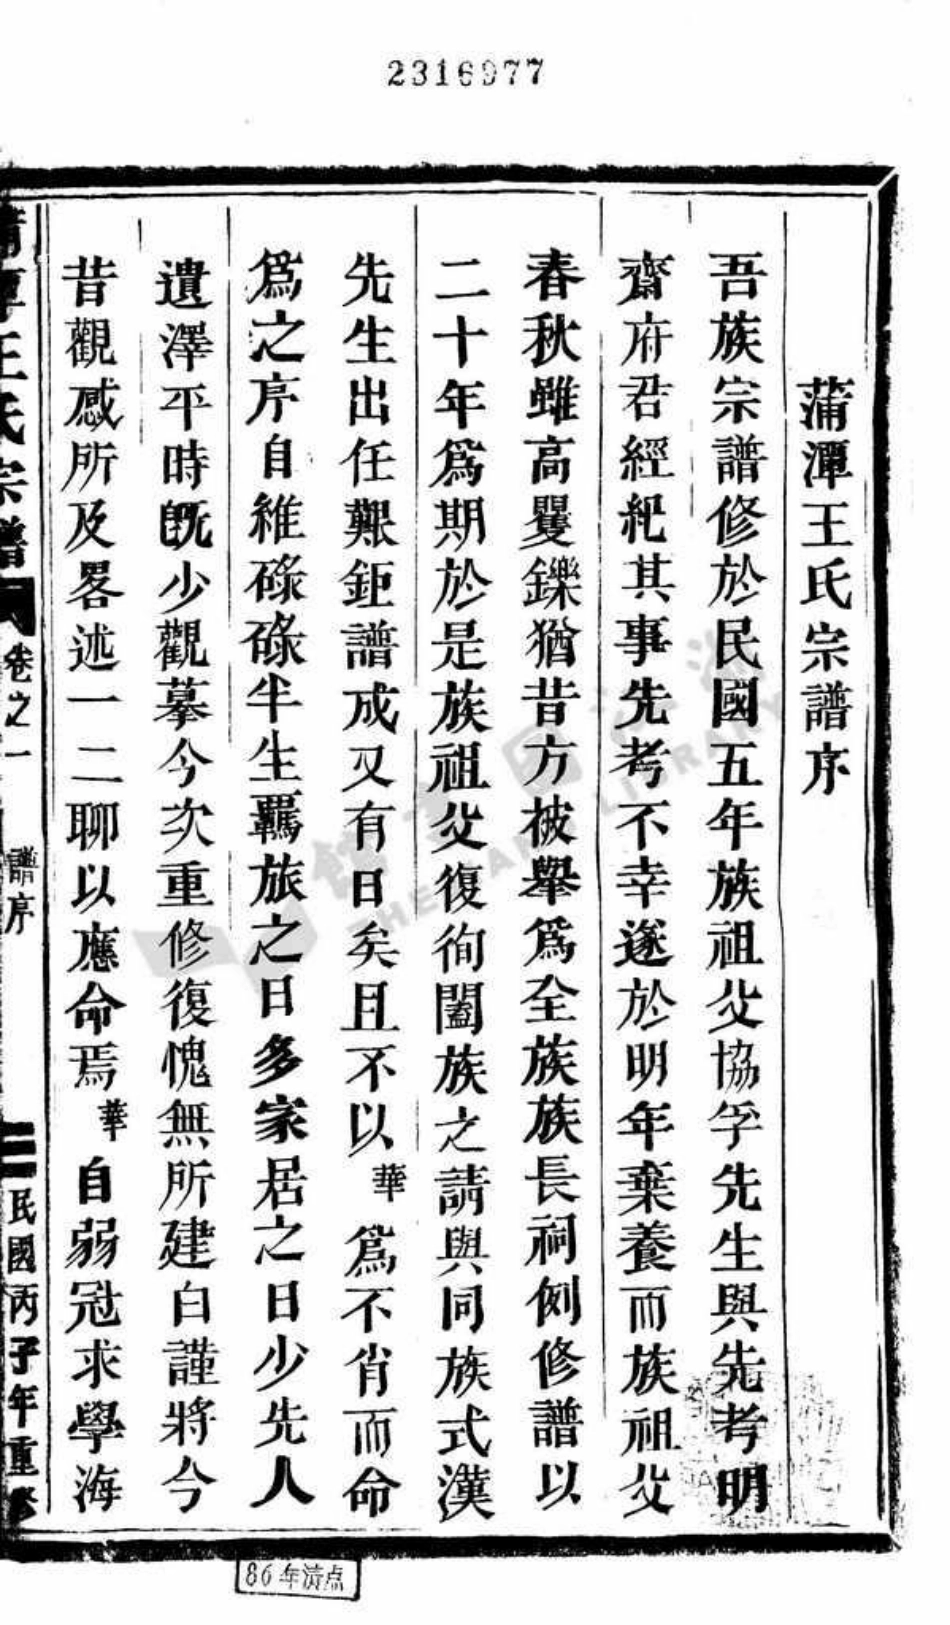 2316977
蒲潭王氏宗譜序
吾族宗譜修於民國五年族祖父協孚先生與先考明
齋府君經紀其事先考不幸遂於明年棄養而族祖父
春秋雖高矍鑠猶昔方被舉爲全族族長祠例修譜以
二十年爲期於是族祖父復徇闔族之請與同族式漢
先生出任艱鉅譜成又有日矣且不以華爲不肖而命
爲之序自維碌碌半生羈旅之日多家居之日少先人
遺澤平時旣少觀摹今次重修復愧無所建白謹將今
昔觀感所及畧述一二聊以應命焉華自弱冠求學海
蒲潭王氏宗譜 卷之一 譜序 民國丙子年重修
THE LIBRARY
86年清点